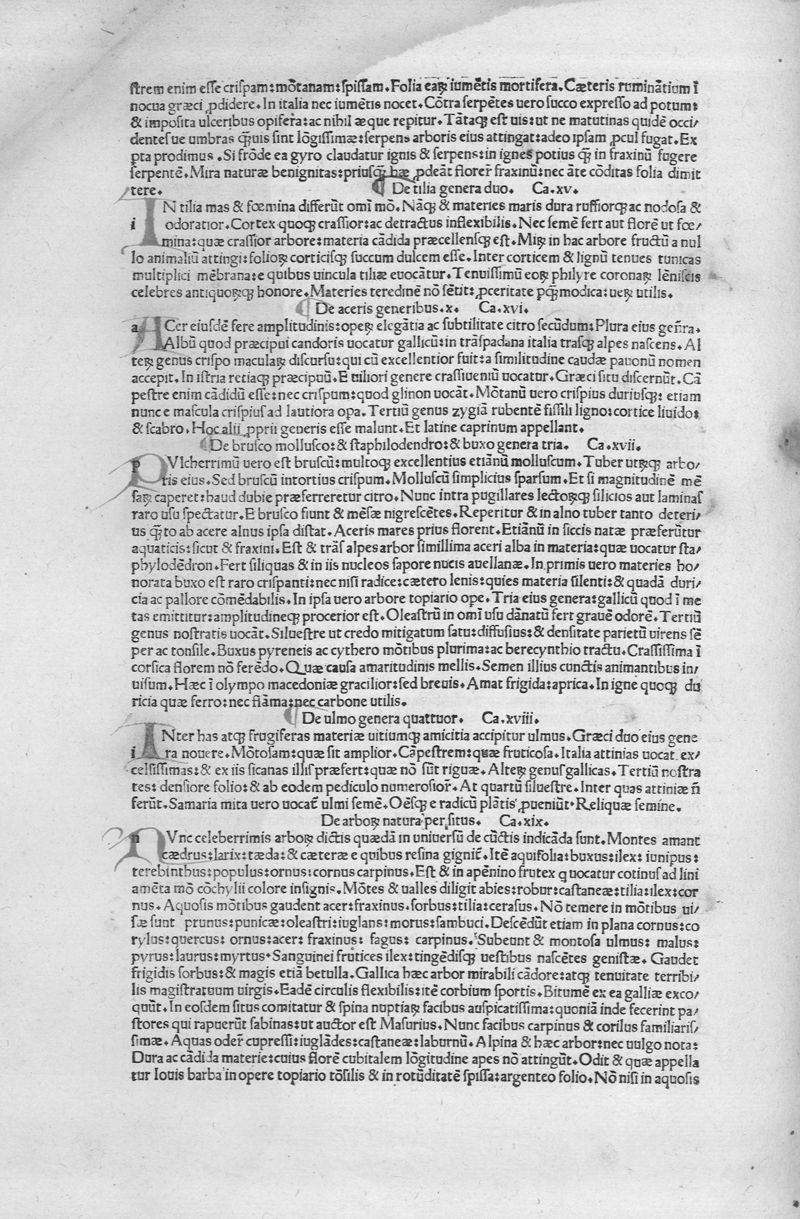 ſtrem enim eſſe criſpam:mõtanam:ſpiſſam.Folia eaꝝ iumẽtis mortifera.Cæteris ruminãtium ĩ
nocua græci ꝓdidere.In italia nec iumẽtis nocet.Cõtra ſerpẽtes uero ſucco expreſſo ad potum:
& impoſita ulceribus opifera:ac nihil æque reperitur.Tãtaꝗ eſt uis:ut ne matutinas quidẽ occi/
denteſue umbras ꝗ̃uis ſint lõgiſſimæ:ſerpens arboris eius attingat:adeo ipſam ꝓcul fugat.Ex
pta prodimus.Si frõde ea gyro claudatur ignis & ſerpens:in ignes potius ꝗ̃ in fraxinũ fugere
ſerpentẽ.Mira naturæ benignitas:priuſꝗ̃ hæ ꝓdeãt florere fraxinũ:nec ãte cõditas folia dimit
tere.
De tilia genera duo. Ca.xv.
i IN tilia mas & fœmina differũt omĩ mõ.Nãꝗ & materies maris dura ruffiorꝗ ac nodoſa &
odoratior.Cortex quoꝗ craſſior:ac detractus inflexibilis.Nec ſemẽ fert aut florẽ ut fœ/
mina:quæ craſſior arbore:materia cãdida præcellenſꝗ eſt.Miꝝ in hac arbore fructũ a nul
lo animaliũ attingi:folioꝝ corticiſꝗ ſuccum dulcem eſſe.Inter corticem & lignũ tenues tunicas
multiplici mẽbrana:e quibus uincula tiliæ euocãtur.Tenuiſſimũ eoꝝ philyre coronaꝝ lẽniſcis
celebres antiquoꝝꝗ honore.Materies teredinẽ nõ ſẽtit:ꝓceritate ꝑꝗ̃modica:ueꝝ utilis.
De aceris generibus.x. Ca.xvi.
a ACer eiuſdẽ fere amplitudinis:opeꝝ elegãtia ac ſubtilitate citro ſecũdum:Plura eius geñra.
Albũ quod præcipui candoris uocatur gallicũ:in trãſpadana italia trãſꝗ alpes naſcens.Al
teꝝ genus criſpo maculaꝝ diſcurſu:qui cũ excellentior fuit:a ſimilitudine caudæ pauonũ nomen
accepit.In iſtria retiaꝗ præcipuũ.E uiliori genere craſſiueniũ uocatur.Græci ſitu diſcernũt.Cã
peſtre enim cãdidũ eſſe:nec criſpum:quod glinon uocãt.Mõtanũ uero criſpius duriuſꝗ: etiam
nunc e maſcula criſpiuſ ad lautiora opa.Tertiũ genus zygiã rubentẽ fiſſili ligno:cortice liuido:
& ſcabro.Hoc alii ꝓprii generis eſſe malunt.Et latine caprinum appellant.
De bruſco molluſco:& ſtaphilodendro:& buxo genera tria. Ca.xvii.
p PVlcherrimũ uero eſt bruſcũ:multoꝗ excellentius etiãnũ molluſcum.Tuber utꝝꝗ arbo/
ris eius.Sed bruſcũ intortius criſpum.Molluſcũ ſimplicius ſparſum.Et ſi magnitudinẽ mẽ
ſaꝝ caperet:haud dubie præferreretur citro.Nunc intra pugillares lectoꝝꝗ ſilicios aut laminaſ
raro uſu ſpectatur.E bruſco fiunt & mẽſæ nigreſcẽtes.Reperitur & in alno tuber tanto deteri/
us ꝗ̃to ab acere alnus ipſa diſtat.Aceris mares prius florent.Etiãnũ in ſiccis natæ præferũtur
aquaticis:ſicut & fraxini.Eſt & trãſ alpes arbor ſimillima aceri alba in materia:quæ uocatur ſta/
phylodẽdron.Fert ſiliquas & in iis nucleos ſapore nucis auellanæ.In primis uero materies ho/
norata buxo eſt raro criſpanti:nec niſi radice:cætero lenis:quies materia ſilenti:& quadã duri/
cia ac pallore cõmẽdabilis.In ipſa uero arbore topiario ope.Tria eius genera:gallicũ quod ĩ me
tas emittitur:amplitudineꝗ procerior eſt.Oleaſtrũ in omĩ uſu dãnatũ fert grauẽ odorẽ.Tertiũ
genus noſtratis uocãt.Silueſtre ut credo mitigatum ſatu:diffuſius:& denſitate parietũ uirens ſẽ
per ac tonſile.Buxus pyreneis ac cythero mõtibus plurima:ac berecynthio tractu.Craſſiſſima ĩ
corſica florem nõ ferẽdo.Quæ cauſa amaritudinis mellis.Semen illius cunctis animantibus in/
uiſum.Hæc ĩ olympo macedoniæ gracilior:ſed breuis.Amat frigida:aprica.In igne quoꝗ du
ricia quæ ferro:nec flãma:nec carbone utilis.
De ulmo genera quattuor. Ca.xviii.
i INter has atꝗ frugiferas materiæ uitiumꝗ amicitia accipitur ulmus.Græci duo eius gene
ra nouere.Mõtoſam:quæ ſit amplior.Cãpeſtrem:quæ fruticoſa.Italia attinias uocat ex/
celſiſſimas:& ex iis ſicanas illiſ præfert:quæ nõ ſũt riguæ.Alteꝝ genuſ gallicas.Tertiũ noſtra
tes:denſiore folio:& ab eodem pediculo numeroſior.At quartũ ſilueſtre.Inter quas attiniæ ñ
ferũt.Samaria mita uero uocat̃ ulmi ſemẽ.Oẽſꝗ e radicũ plãtis ꝓueniũt.Reliquæ ſemine.
De arboꝝ natura per ſitus. Ca.xix.
n NVnc celeberrimis arboꝝ dictis quædã in uniuerſũ de cũctis indicãda ſunt.Montes amant
cædrus:larix:tæda:& cæteræ e quibus reſina gignit̃.Itẽ aquifolia:buxus:ilex: iunipus:
terebinthus:populus:ornus:cornus carpinus.Eſt & in apẽnino frutex q uocatur cotinuſ ad lini
amẽta mõ cõchylii colore inſignis.Mõtes & ualles diligit abies:robur:caſtaneæ:tilia:ilex:cor
nus.Aquoſis mõtibus gaudent acer:fraxinus.ſorbus:tilia:ceraſus.Nõ temere in mõtibus ui/
ſæ ſunt prunus:punicæ:oleaſtri:iuglans:morus:ſambuci.Deſcẽdũt etiam in plana cornus:co
rylus:quercus: ornus:acer: fraxinus: fagus: carpinus. Subeunt & montoſa ulmus: malus:
pyrus:laurus:myrtus.Sanguinei frutices ilex:tingẽdiſꝗ ueſtibus naſcẽtes geniſtæ. Gaudet
frigidis ſorbus:& magis etiã betulla.Gallica hæc arbor mirabili cãdore:atꝗ tenuitate terribi/
lis magiſtratuum uirgis.Eadẽ circulis flexibilis:itẽ corbium ſportis.Bitumẽ ex ea galliæ exco/
quũt.In eoſdem ſitus comitatur & ſpina nuptiaꝝ facibus auſpicatiſſima:quoniã inde fecerint pa/
ſtores qui rapuerũt ſabinas:ut auctor eſt Maſurius.Nunc facibus carpinus & corilus familiariſ/
ſimæ.Aquas oder̃ cupreſſi:iuglãdes:caſtaneæ:laburnũ.Alpina & hæc arbor:nec uulgo nota:
Dura ac cãdida materie:cuius florẽ cubitalem lõgitudine apes nõ attingũt.Odit & quæ appella
tur Iouis barba in opere topiario tõſilis & in rotũditatẽ ſpiſſa:argenteo folio.Nõ niſi in aquoſis